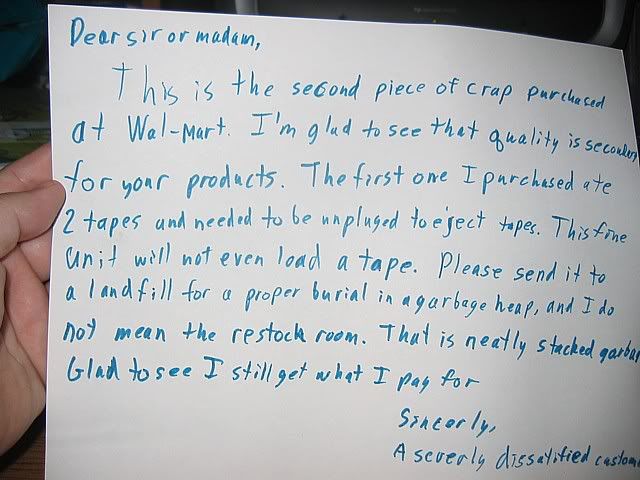 Dear sir or madam,
This is the second piece of crap purchased
at Wal-Mart. I'm glad to see that quality is
for your products. The first one I purchased ate
2 tapes and needed to be unpluged to eject tapes. This fine
unit will not even load a tape. Please send it to
a landfill for a proper burial in a garbage heap, and I do
not mean the restock room. That is neatly stacked
Glad to see I still get what I pay for
Sincerly,
A severly dissatified